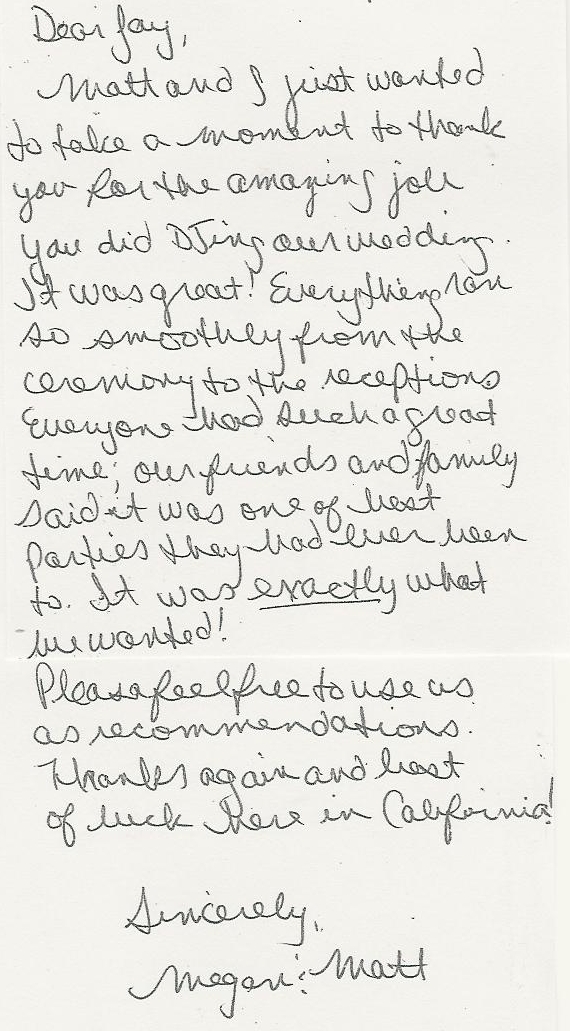 Dear Jay,
Matt and I just wanted
to take a moment to thank
you for the amazing job
you did DJing our wedding.
It was great! Everything ran
so smoothly from the
ceremony to the receptions
Everyone had such a great
time; our friends and family
said it was one of best
parties they had ever been
to. It was exactly what
we wanted!
Please feel free to use us
as recommendations.
Thanks again and best
of luck here in California!
Sincerely,
Megan & Matt